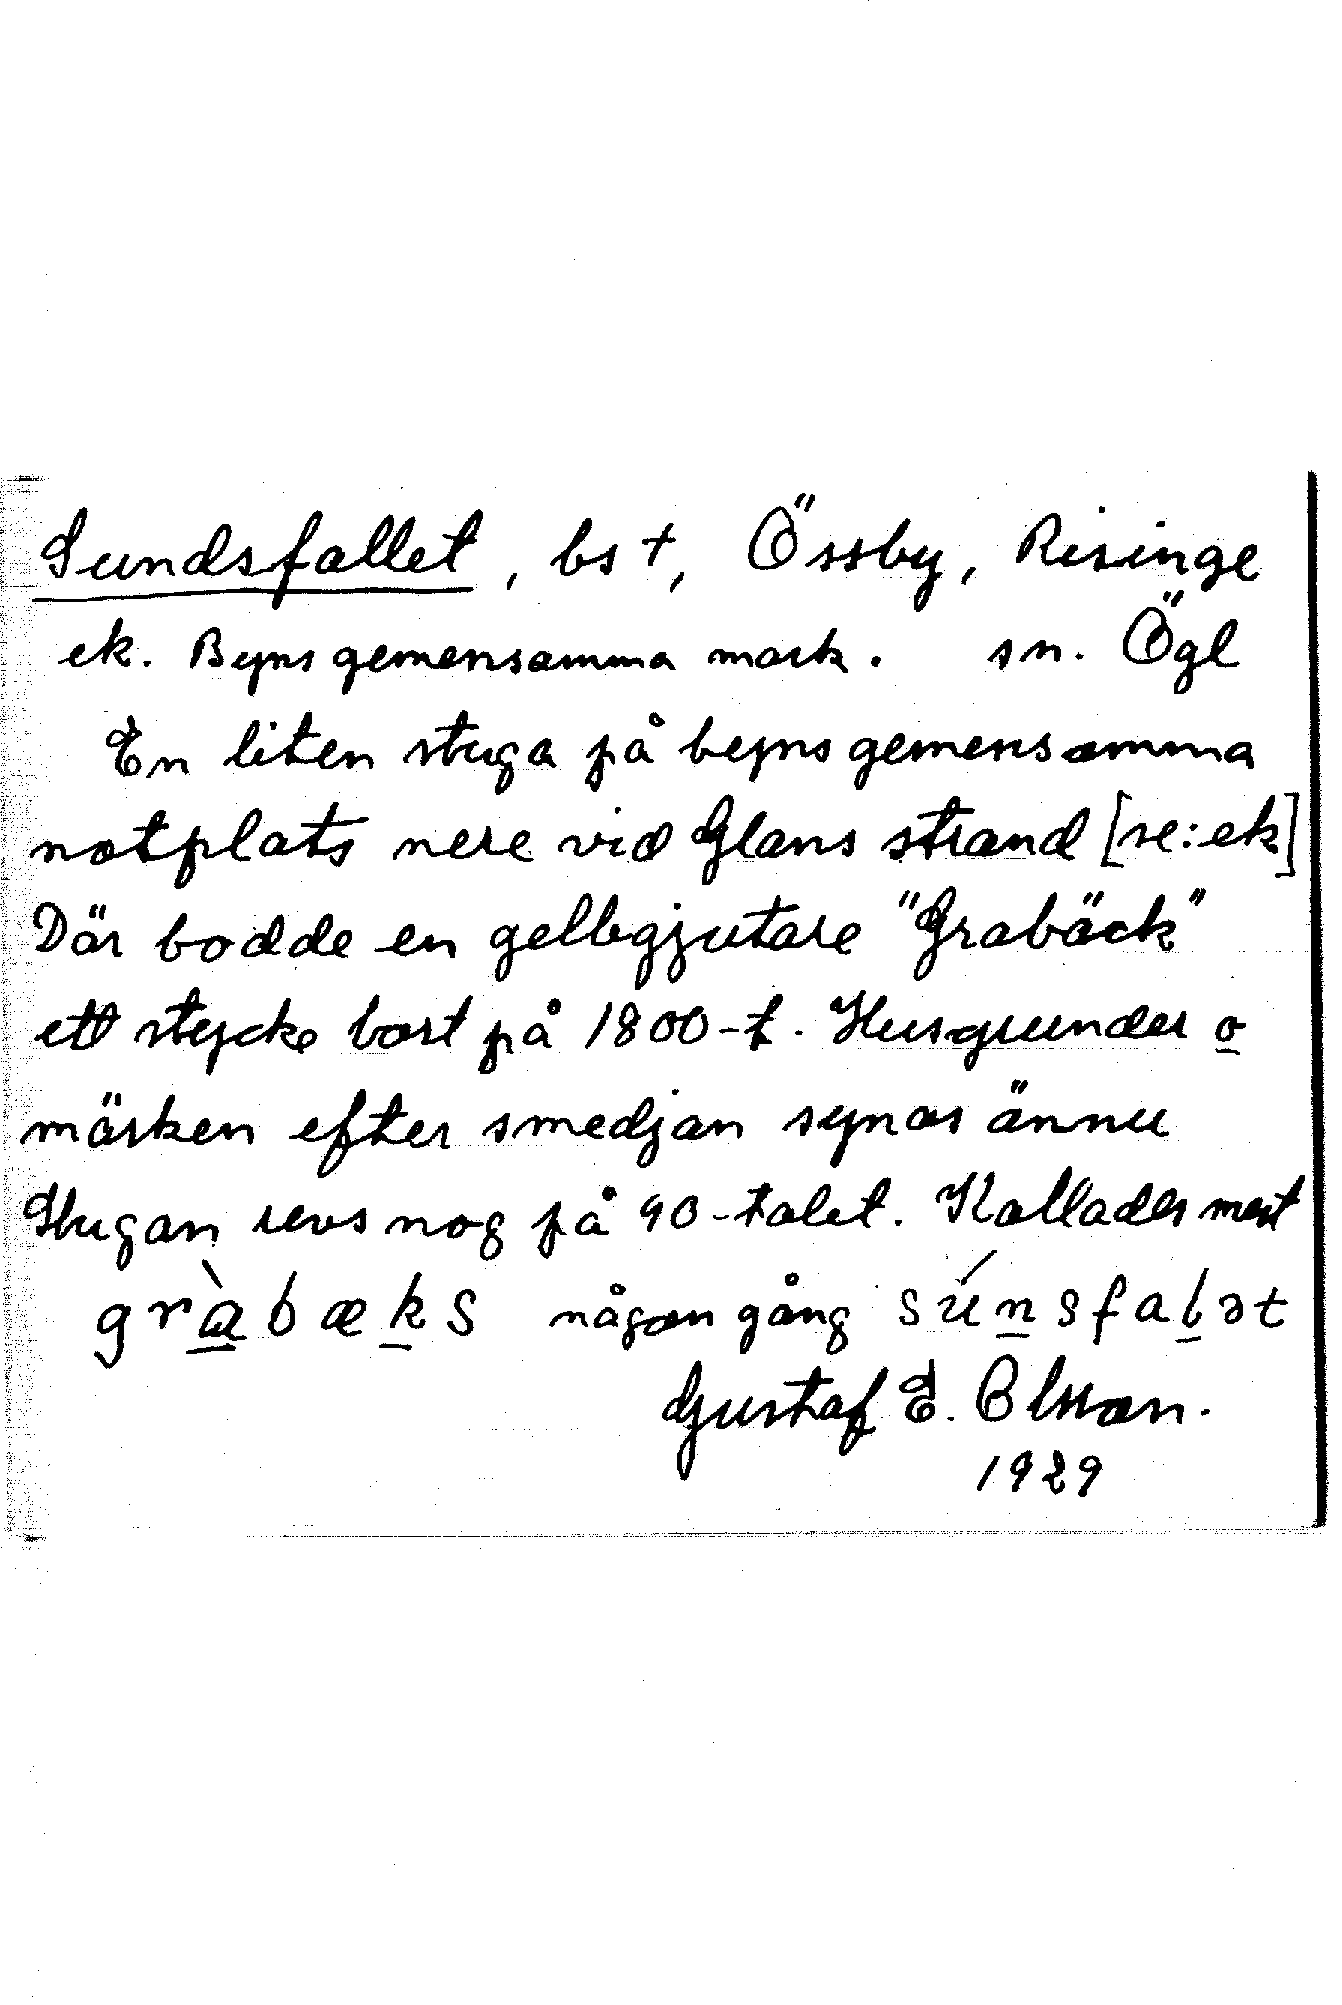 Sundsfallet, bs †, Össby, Risinge
ek. Byns gemensamma mark. sn. Ögl
En liten stuga på byns gemensamma
notplats nere vid Glans strand [se: ek]
Där bodde en gelbgjutare "Grabäck"
ett stycke bort på 1800-t. Husgrunder o
märken efter smedjan synas ännu
Stugan revs nog på 90-talet. Kallades mest
gràbæks någon gång súnsfalət
Gustaf E. Olsson.
1929